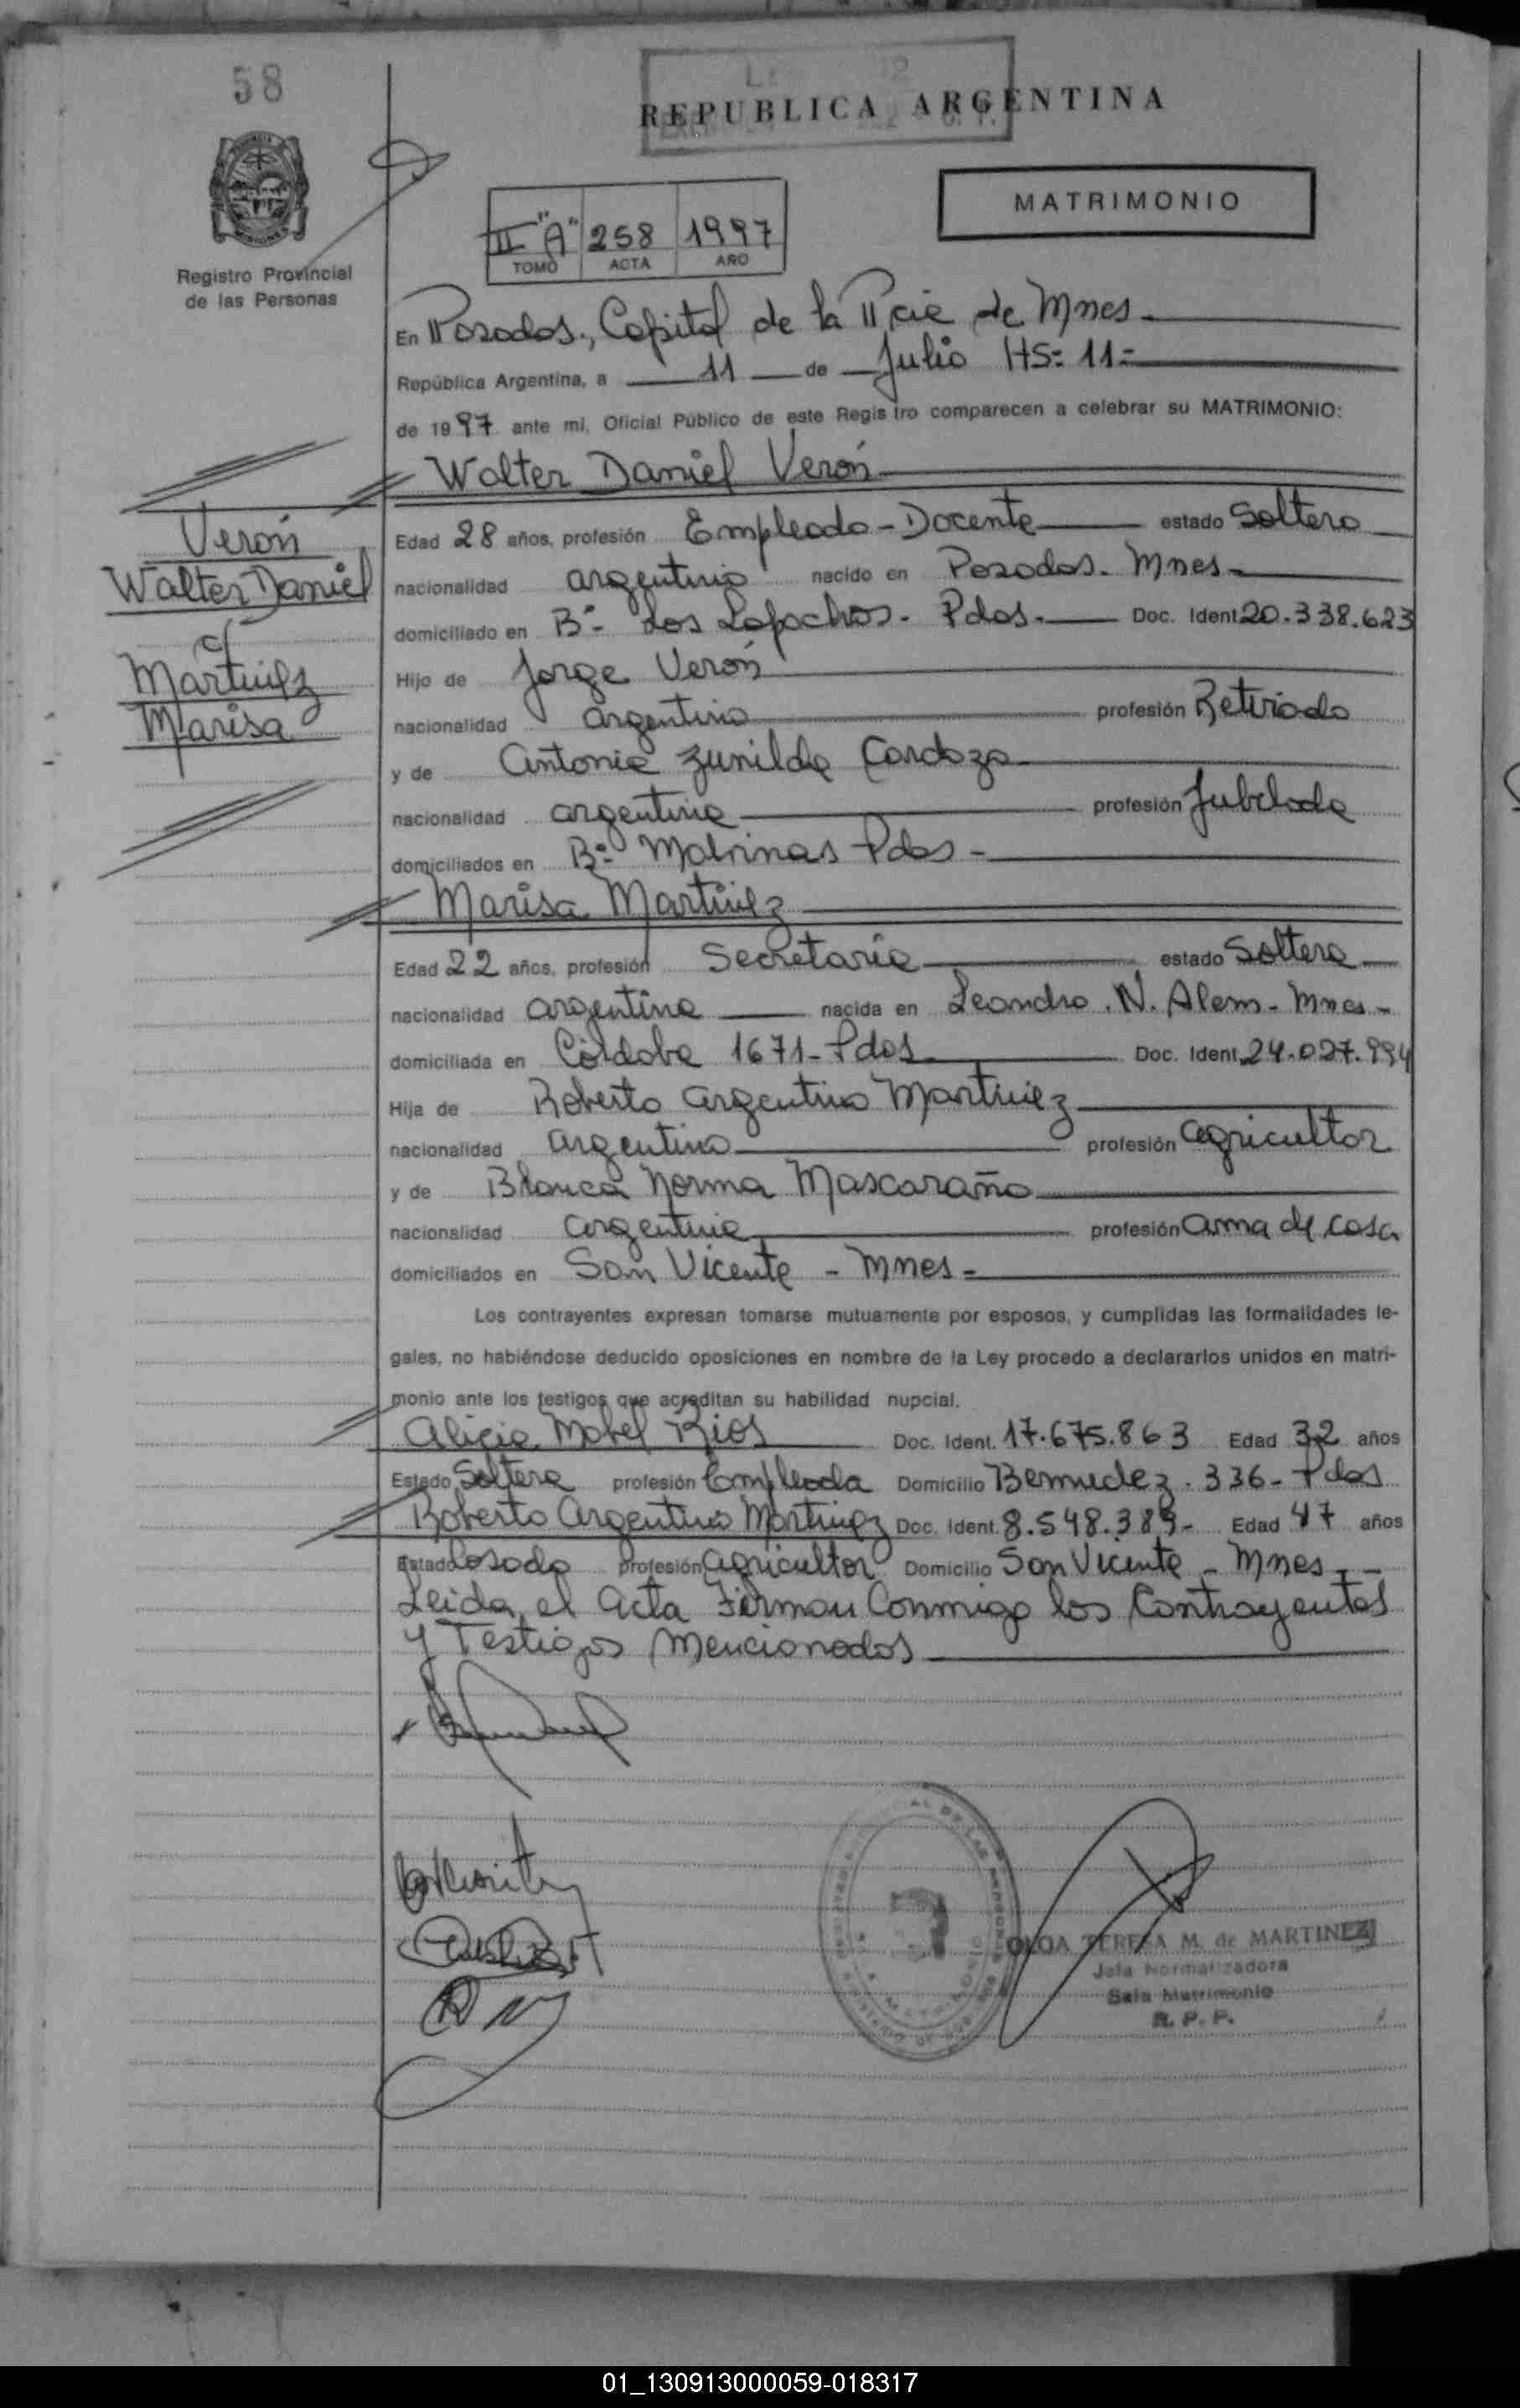 58
REPUBLICA ARGENTINA
MATRIMONIO
II "A" 258 1997
TOMO ACTA AÑO
Registro Provincial
de las Personas
En Posadas, Capital de la Pcia de Mnes
República Argentina, a 11 de Julio HS: 11=
de 1997 ante mi, Oficial Público de este Registro comparecen a celebrar su MATRIMONIO:
Walter Daniel Verón
Verón
Walter Daniel
c/
Martinez
Marisa
Edad 28 años, profesión Empleado - Docente estado Soltero
nacionalidad argentino nacido en Posadas - Mnes -
domiciliado en Bº Los Lapachos - Pdas. Doc. Ident 20.338.623
Hijo de Jorge Verón
nacionalidad argentino profesión Retirado
y de Antonia Zunilda Cardozo
nacionalidad argentina profesión Jubilada
domiciliados en Bº Malvinas Pdas -
Marisa Martinez
Edad 22 años, profesión Secretaria estado Soltera
nacionalidad argentina nacida en Leandro N. Alem - Mnes -
domiciliada en Córdoba 1671 - Pdas Doc. Ident 24.027.994
Hija de Roberto Argentino Martinez
nacionalidad argentino profesión agricultor
y de Blanca Norma Mascaraño
nacionalidad argentina profesión ama de casa
domiciliados en San Vicente - Mnes -
Los contrayentes expresan tomarse mutuamente por esposos, y cumplidas las formalidades le-
gales, no habiéndose deducido oposiciones en nombre de la Ley procedo a declararlos unidos en matri-
monio ante los testigos que acreditan su habilidad nupcial.
Alicia Mabel Rios Doc. Ident. 17.675.863 Edad 32 años
Estado Soltera profesión Empleada Domicilio Bermudez. 336 - Pdas
Roberto Argentino Martinez Doc. Ident. 8.548.389 - Edad 47 años
Estado Casado profesión agricultor Domicilio San Vicente - Mnes -
Leida el acta Firman Conmigo los Contrayentes
y Testigos Mencionados
OLGA TERESA M. de MARTINEZ
Jefa Normalizadora
Sala Matrimonio
R. P. P.
01_130913000059-018317